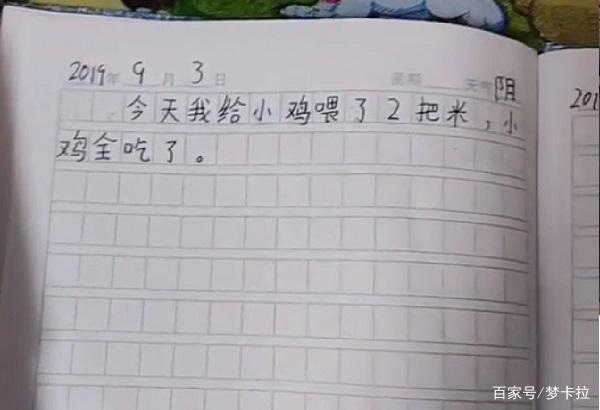 2019年 9 月 3 日 星期 天气 阴
今天我给小鸡喂了2把米，小
鸡全吃了。
201
百家号/梦卡拉